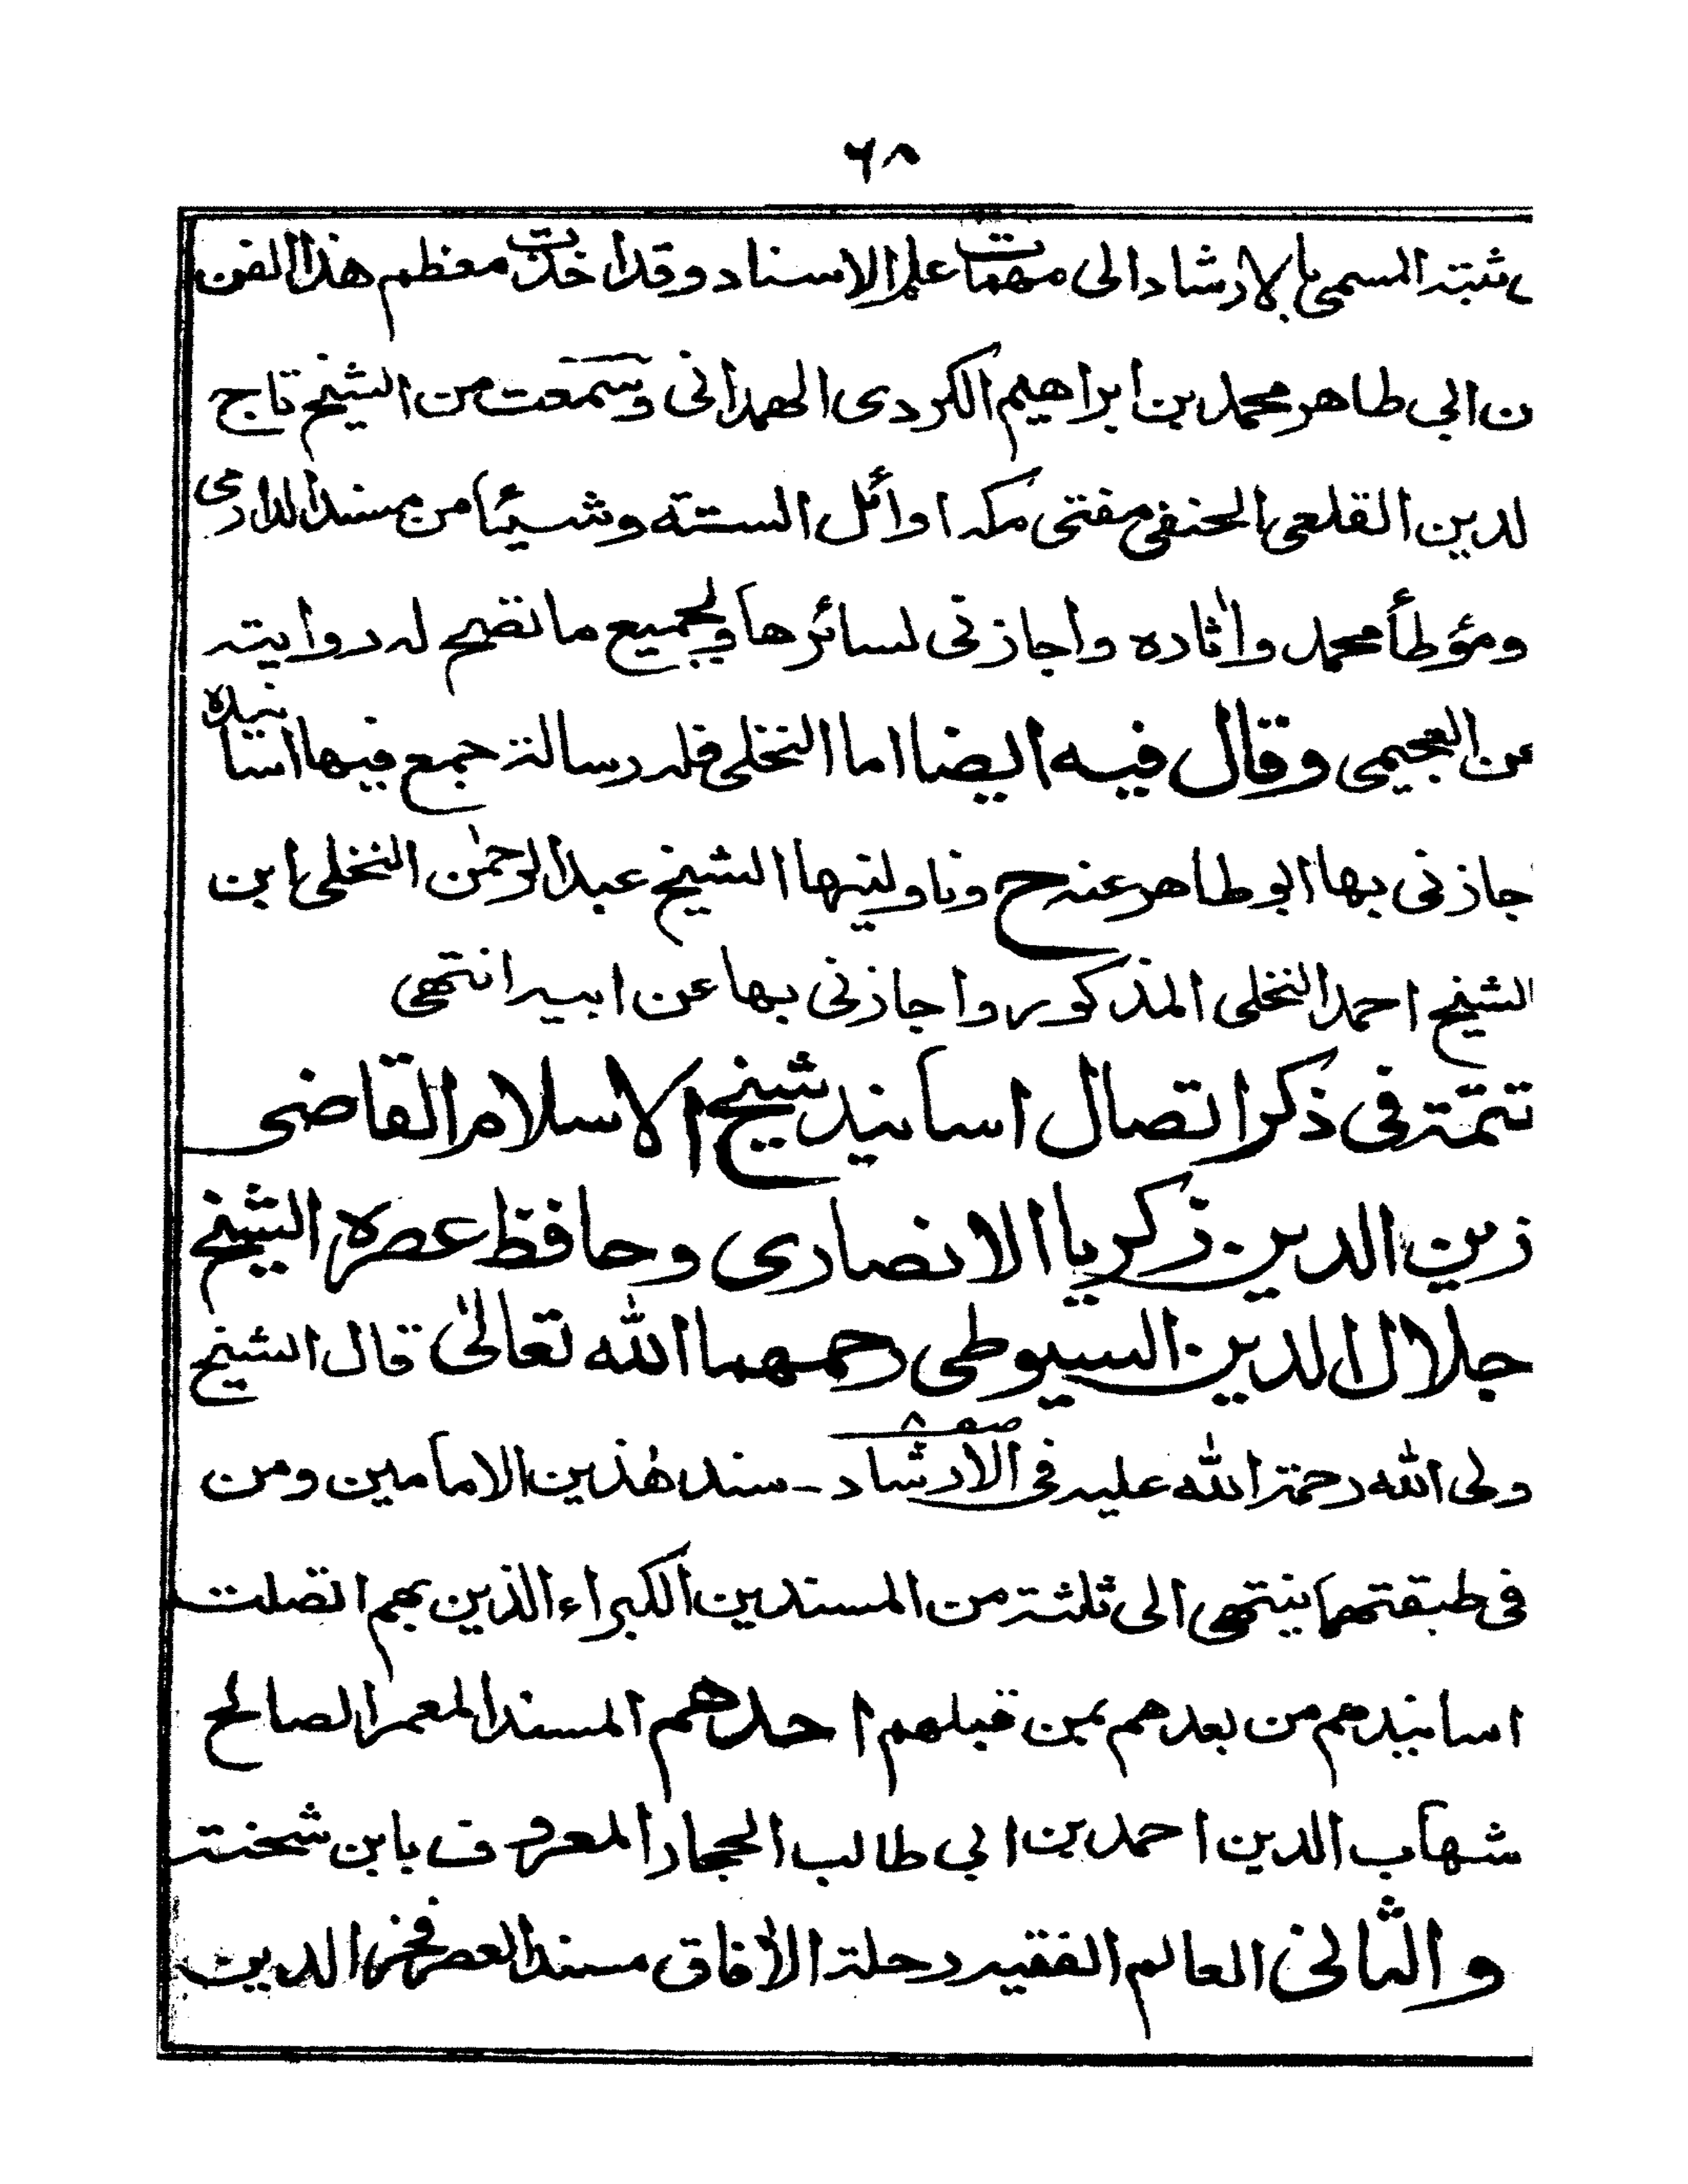 ٦٨
ثبته المسمى بالارشاد الى مهمات علم الاسناد وقد اخذت معظم هذا الفن
ن ابي طاهر محمد بن ابراهيم الكردى الهمدانى وسمعت من الشيخ تاج
لدين القلعى الحنفى مفتى مكه اوائل الستة وشيئا من مسند الدارمى
ومؤطأ محمد واٰثاره واجازنى لسائرها وبجميع ما تصح له روايته
عن العجيمى وقال فيه ايضا اما النخلى فله رسالة جمع فيها اسانيده
جازنى بها ابو طاهر عنه ح وناولنيها الشيخ عبد الرحمٰن النخلى ابن
الشيخ احمد النخلى المذكور واجازنى بها عن ابيه انتهى
تتمة فى ذكر اتصال اسانيد شيخ الاسلام القاضى
زين الدين زكريا الانصارى وحافظ عصره الشيخ
جلال الدين السيوطى رحمهما الله تعالىٰ قال الشيخ
ولى الله رحمة الله عليه فى الارشاد صفـ ٨ ـ سند هٰذين الامامين ومن
فى طبقتهما ينتهى الى ثلثة من المسندين الكبراء الذين بهم اتصلت
اسانيدهم من بعدهم بمن قبلهم احدهم المسند المعمر الصالح
شهاب الدين احمد بن ابي طالب الحجار المعروف بابن شحنة
والثانى العالم الفقيه رحلة الاٰفاق مسند العصر فخر الدين